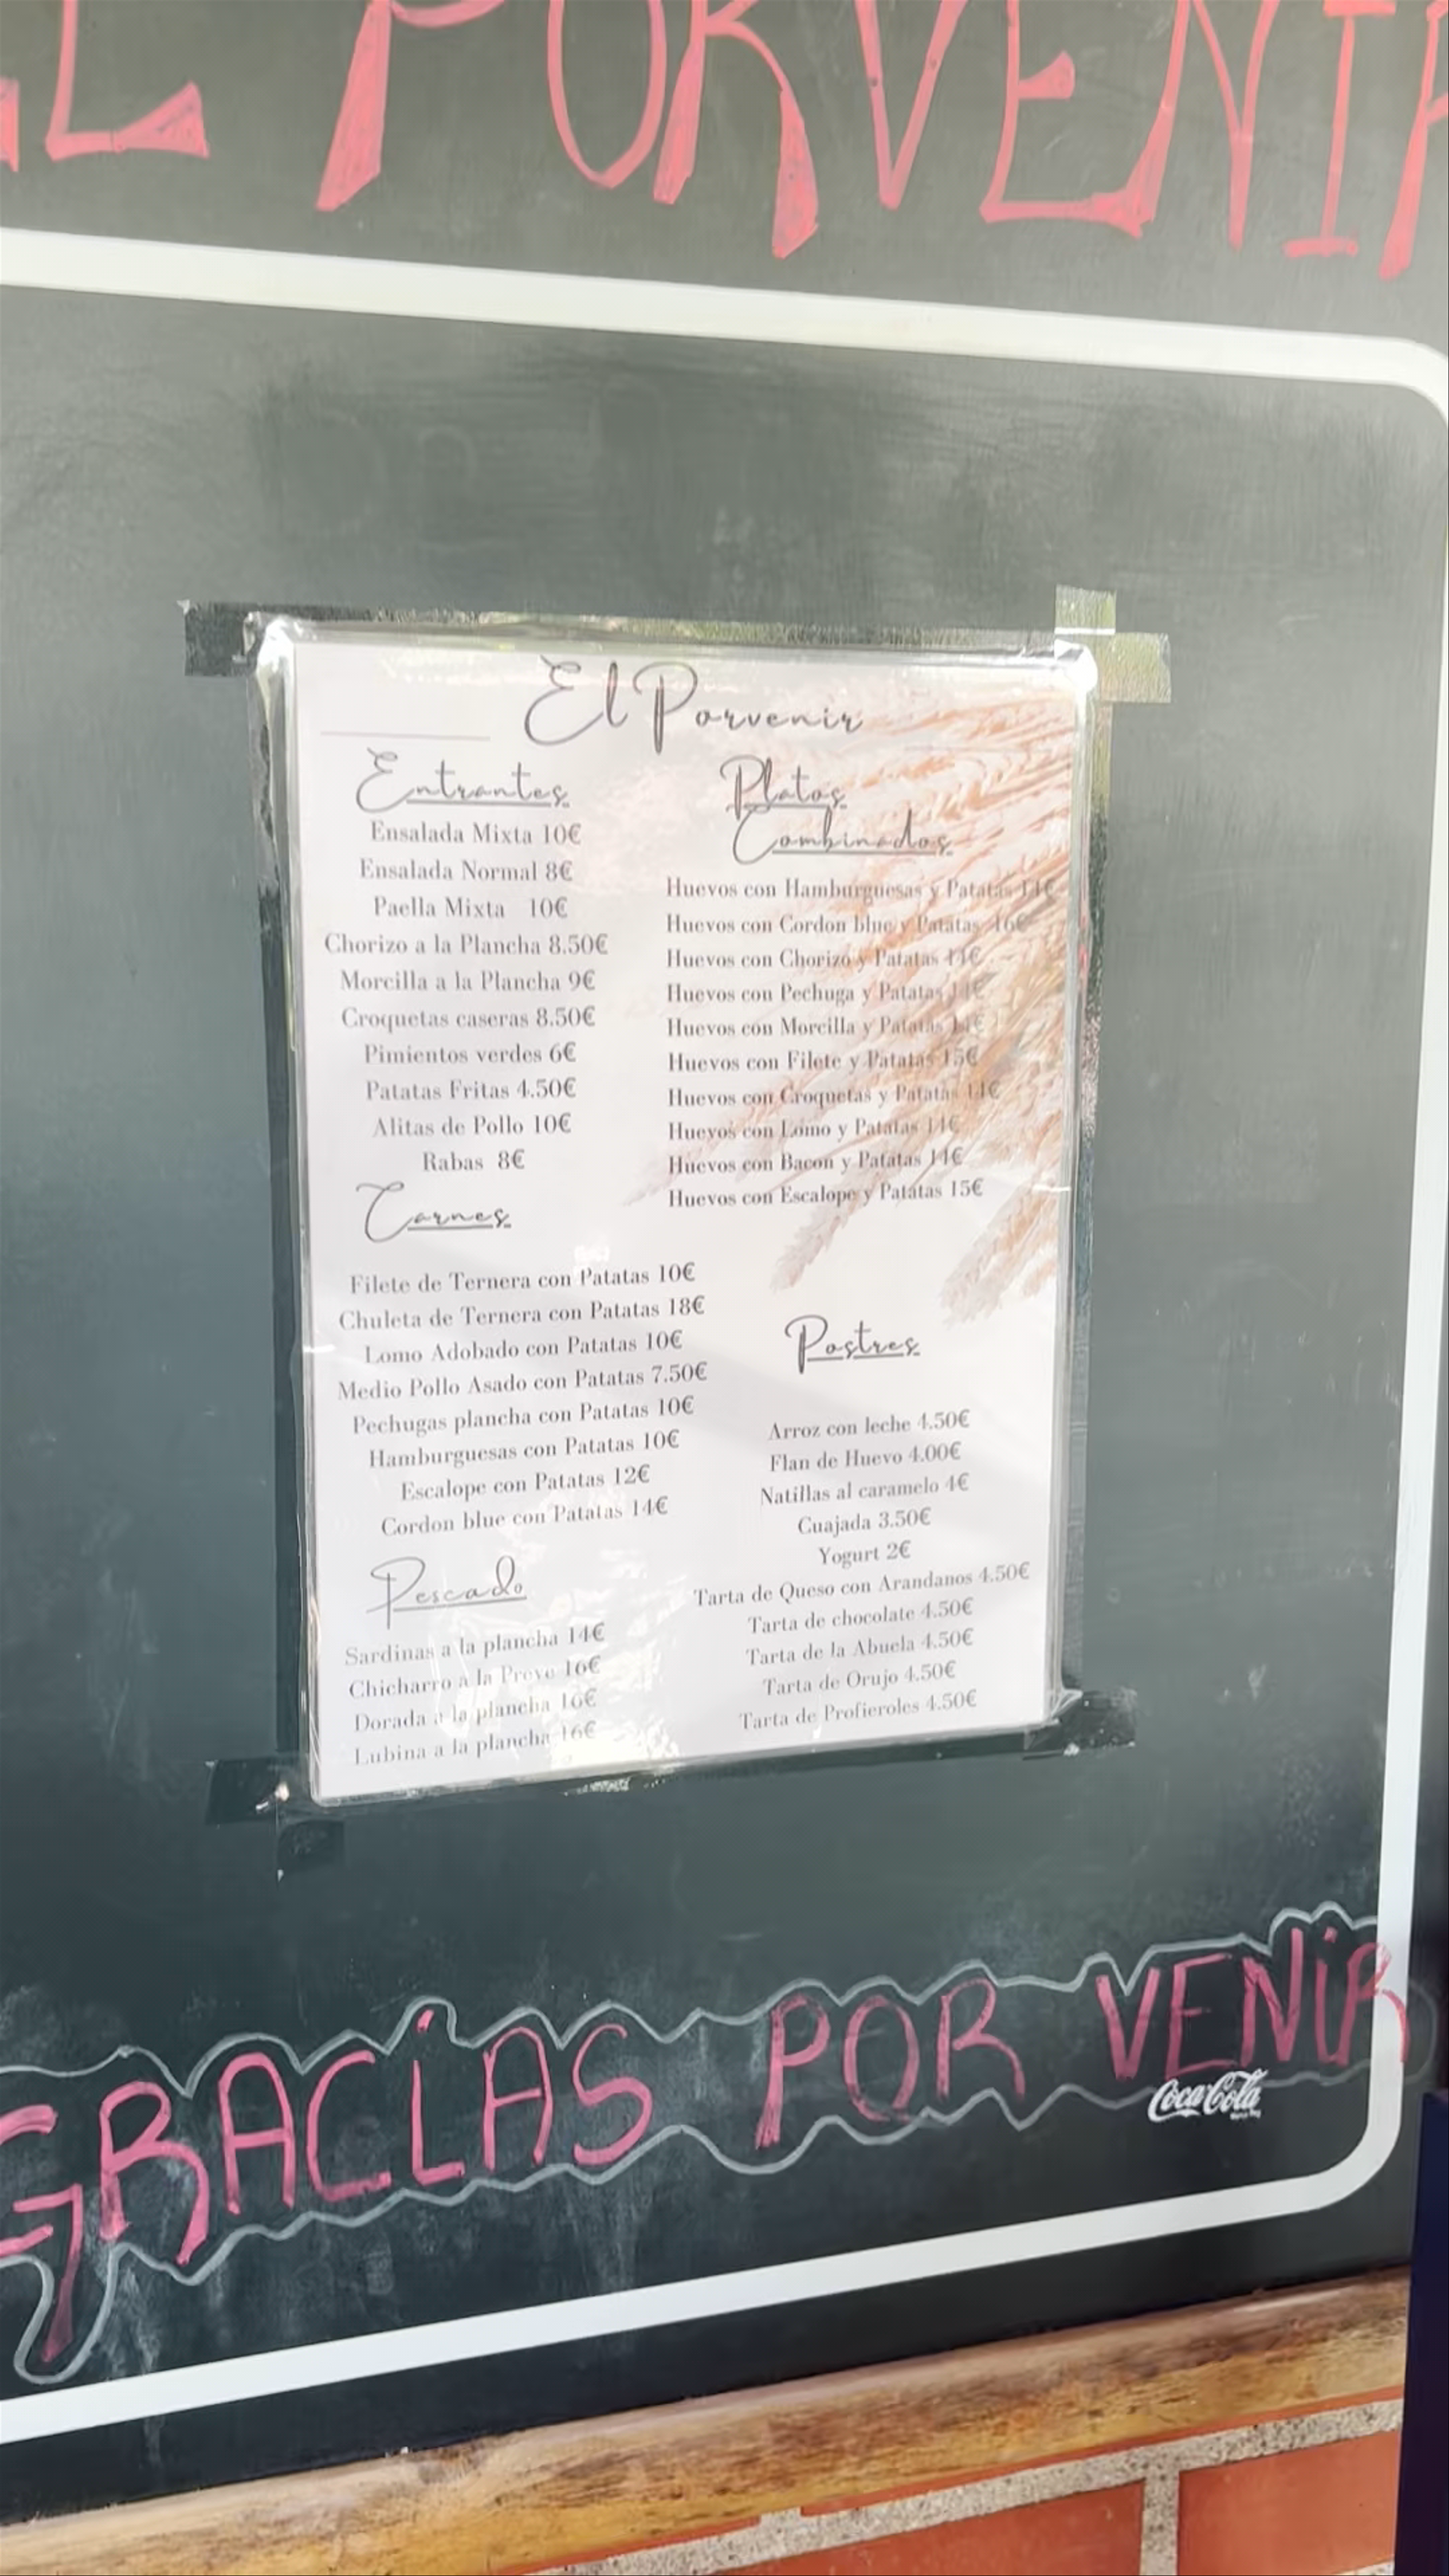 EL PORVENIR
El Porvenir
Entrantes
Ensalada Mixta 10€
Ensalada Normal 8€
Paella Mixta 10€
Chorizo a la Plancha 8.50€
Morcilla a la Plancha 9€
Croquetas caseras 8.50€
Pimientos verdes 6€
Patatas Fritas 4.50€
Alitas de Pollo 10€
Rabas 8€
Carnes
Filete de Ternera con Patatas 10€
Chuleta de Ternera con Patatas 18€
Lomo Adobado con Patatas 10€
Medio Pollo Asado con Patatas 7.50€
Pechugas plancha con Patatas 10€
Hamburguesas con Patatas 10€
Escalope con Patatas 12€
Cordon blue con Patatas 14€
Pescado
Sardinas a la plancha 14€
Chicharro a la Preve 16€
Dorada a la plancha 16€
Lubina a la plancha 16€
Platos
Combinados
Huevos con Hamburguesas y Patatas 14€
Huevos con Cordon blue y Patatas 16€
Huevos con Chorizo y Patatas 14€
Huevos con Pechuga y Patatas 14€
Huevos con Morcilla y Patatas 14€
Huevos con Filete y Patatas 15€
Huevos con Croquetas y Patatas 14€
Huevos con Lomo y Patatas 14€
Huevos con Bacon y Patatas 14€
Huevos con Escalope y Patatas 15€
Postres
Arroz con leche 4.50€
Flan de Huevo 4.00€
Natillas al caramelo 4€
Cuajada 3.50€
Yogurt 2€
Tarta de Queso con Arandanos 4.50€
Tarta de chocolate 4.50€
Tarta de la Abuela 4.50€
Tarta de Orujo 4.50€
Tarta de Profieroles 4.50€
GRACIAS POR VENIR
Coca-Cola